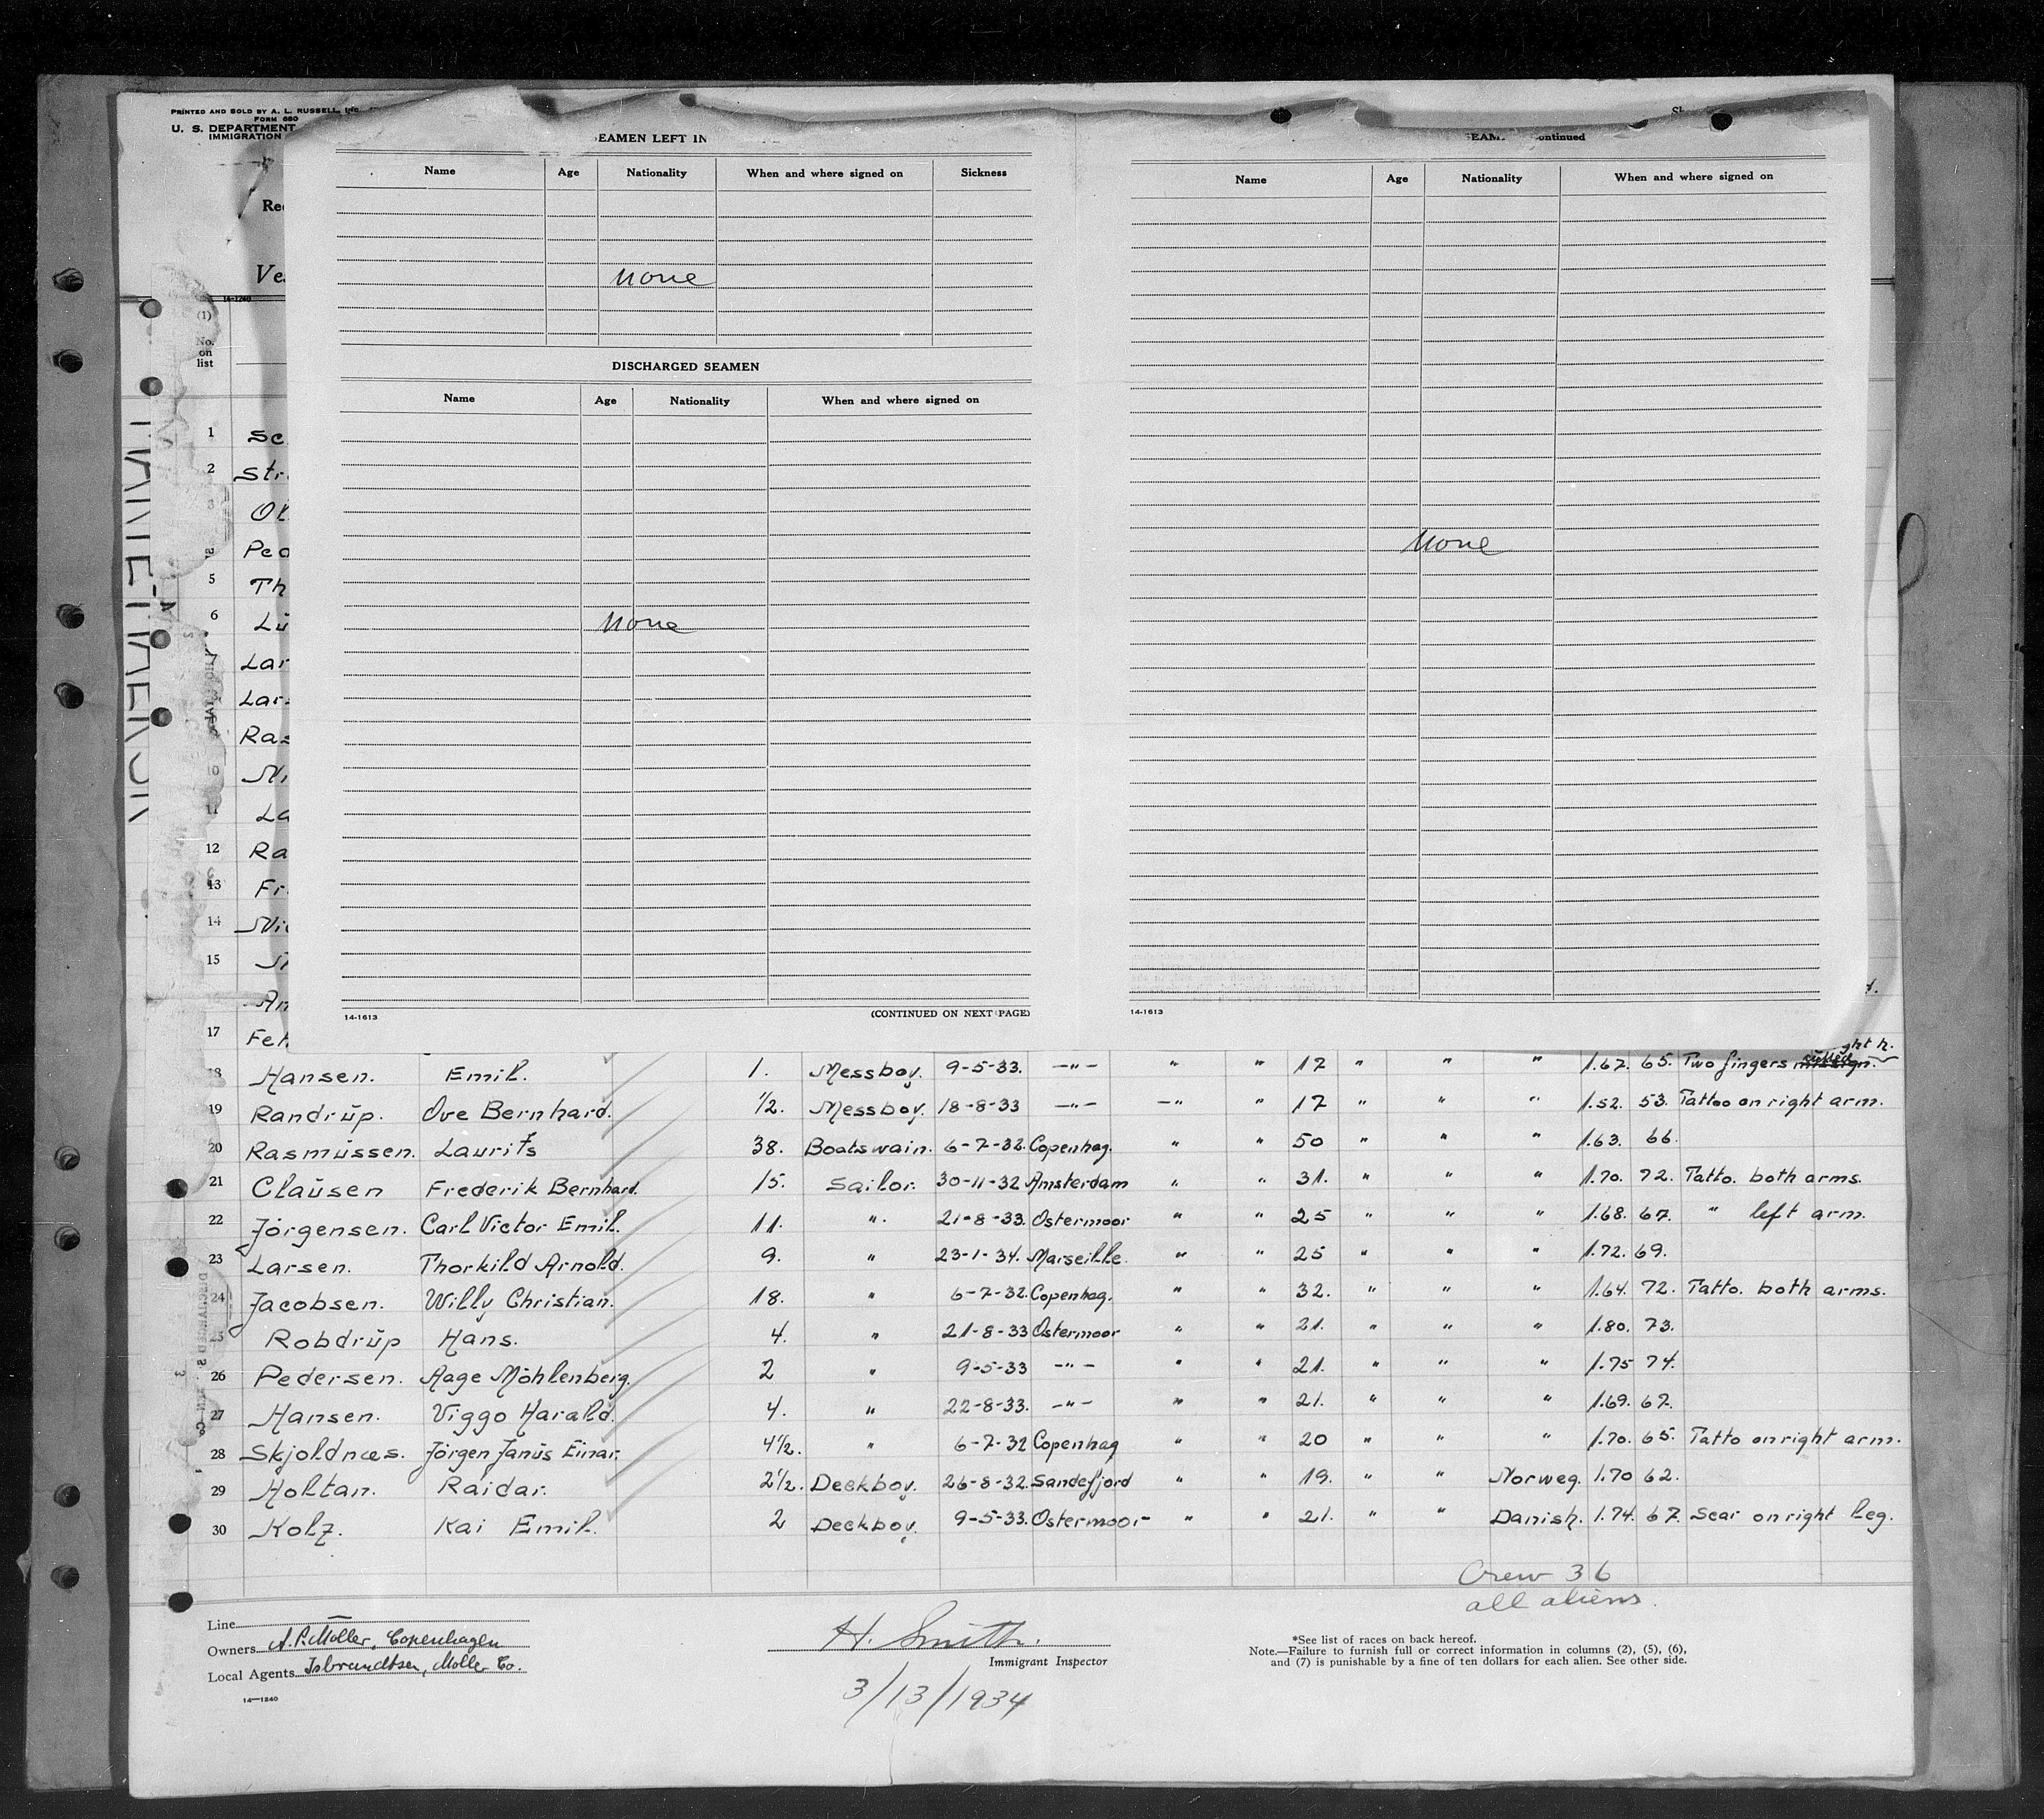 PRINTED AND SOLD BY A. L. RUSSELL, INC.
FORM 680
U. S. DEPARTMENT
IMMIGRATION
14-1240
(1)
No.
on
list
SEAMEN LEFT IN
Name Age Nationality When and where signed on Sickness
None
DISCHARGED SEAMEN
Name Age Nationality When and where signed on
None
14-1613 (CONTINUED ON NEXT PAGE)
continued
Name Age Nationality When and where signed on
None
14-1613
1 Sc
2 Str
Ol
5 Th
6 Lü
Lar
Lars
Ras
11 La
12 Ra
13 Fr
14
15
17
ght h.
18 Hansen. Emil. 1. Messboy. 9-5-33. -"- " " 17 " " " 1.67. 65. Two fingers
19 Randrüp. Ove Bernhard. 1/2. Messboy. 18-8-33 -"- -"- " 17 " " " 1.52. 53. Tattoo on right arm.
20 Rasmüssen. Laurits 38. Boatswain. 6-7-32. Copenhag. " " 50 " " " 1.63. 66.
21 Claüsen Frederik Bernhard. 15. Sailor. 30-11-32 Amsterdam " " 31. " " " 1.70. 72. Tatto. both arms.
22 Jörgensen. Carl Victor Emil. 11. " 21-8-33. Ostermoor " " 25 " " " 1.68. 67. " left arm.
23 Larsen. Thorkild Arnold. 9. " 23-1-34. Marseille. " " 25 " " " 1.72. 69.
24 Jacobsen. Willy Christian. 18. " 6-7-32. Copenhag. " " 32. " " " 1.64. 72. Tatto. both arms.
25 Robdrüp Hans. 4. " 21-8-33 Ostermoor " " 21. " " " 1.80. 73.
26 Pedersen. Aage Möhlenberg. 2 " 9-5-33 -"- " " 21. " " " 1.75 74.
27 Hansen. Viggo Harald. 4. " 22-8-33. -"- " " 21. " " " 1.69. 67.
28 Skjoldnæs. Jörgen Janüs Einar. 4 1/2. " 6-7-32 Copenhag " " 20 " " " 1.70. 65. Tatto on right arm.
29 Holtan. Raidar. 2 1/2. Deckboy. 26-8-32. Sandefjord " " 19. " " Norweg. 1.70 62.
30 Kolz. Kai Emil. 2 Deckboy. 9-5-33. Ostermoor- " " 21. " " Danish. 1.74. 67. Scar on right leg.
Crew 36
all aliens.
Line
Owners A. P. Moller, Copenhagen
Local Agents Isbrandtsen, Moller Co.
14-1240
H. Smith.
Immigrant Inspector
3/13/1934
*See list of races on back hereof.
Note.—Failure to furnish full or correct information in columns (2), (5), (6),
and (7) is punishable by a fine of ten dollars for each alien. See other side.